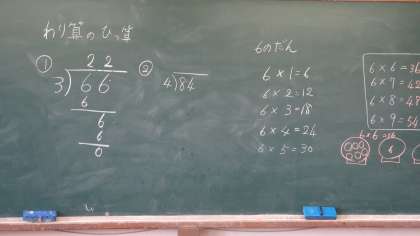 わり算のひっ算
①
22
3)66
6
6
6
0
②
4)84
6のだん
6×1=6
6×2=12
6×3=18
6×4=24
6×5=30
6×6=36
6×7=42
6×8=48
6×9=54
6